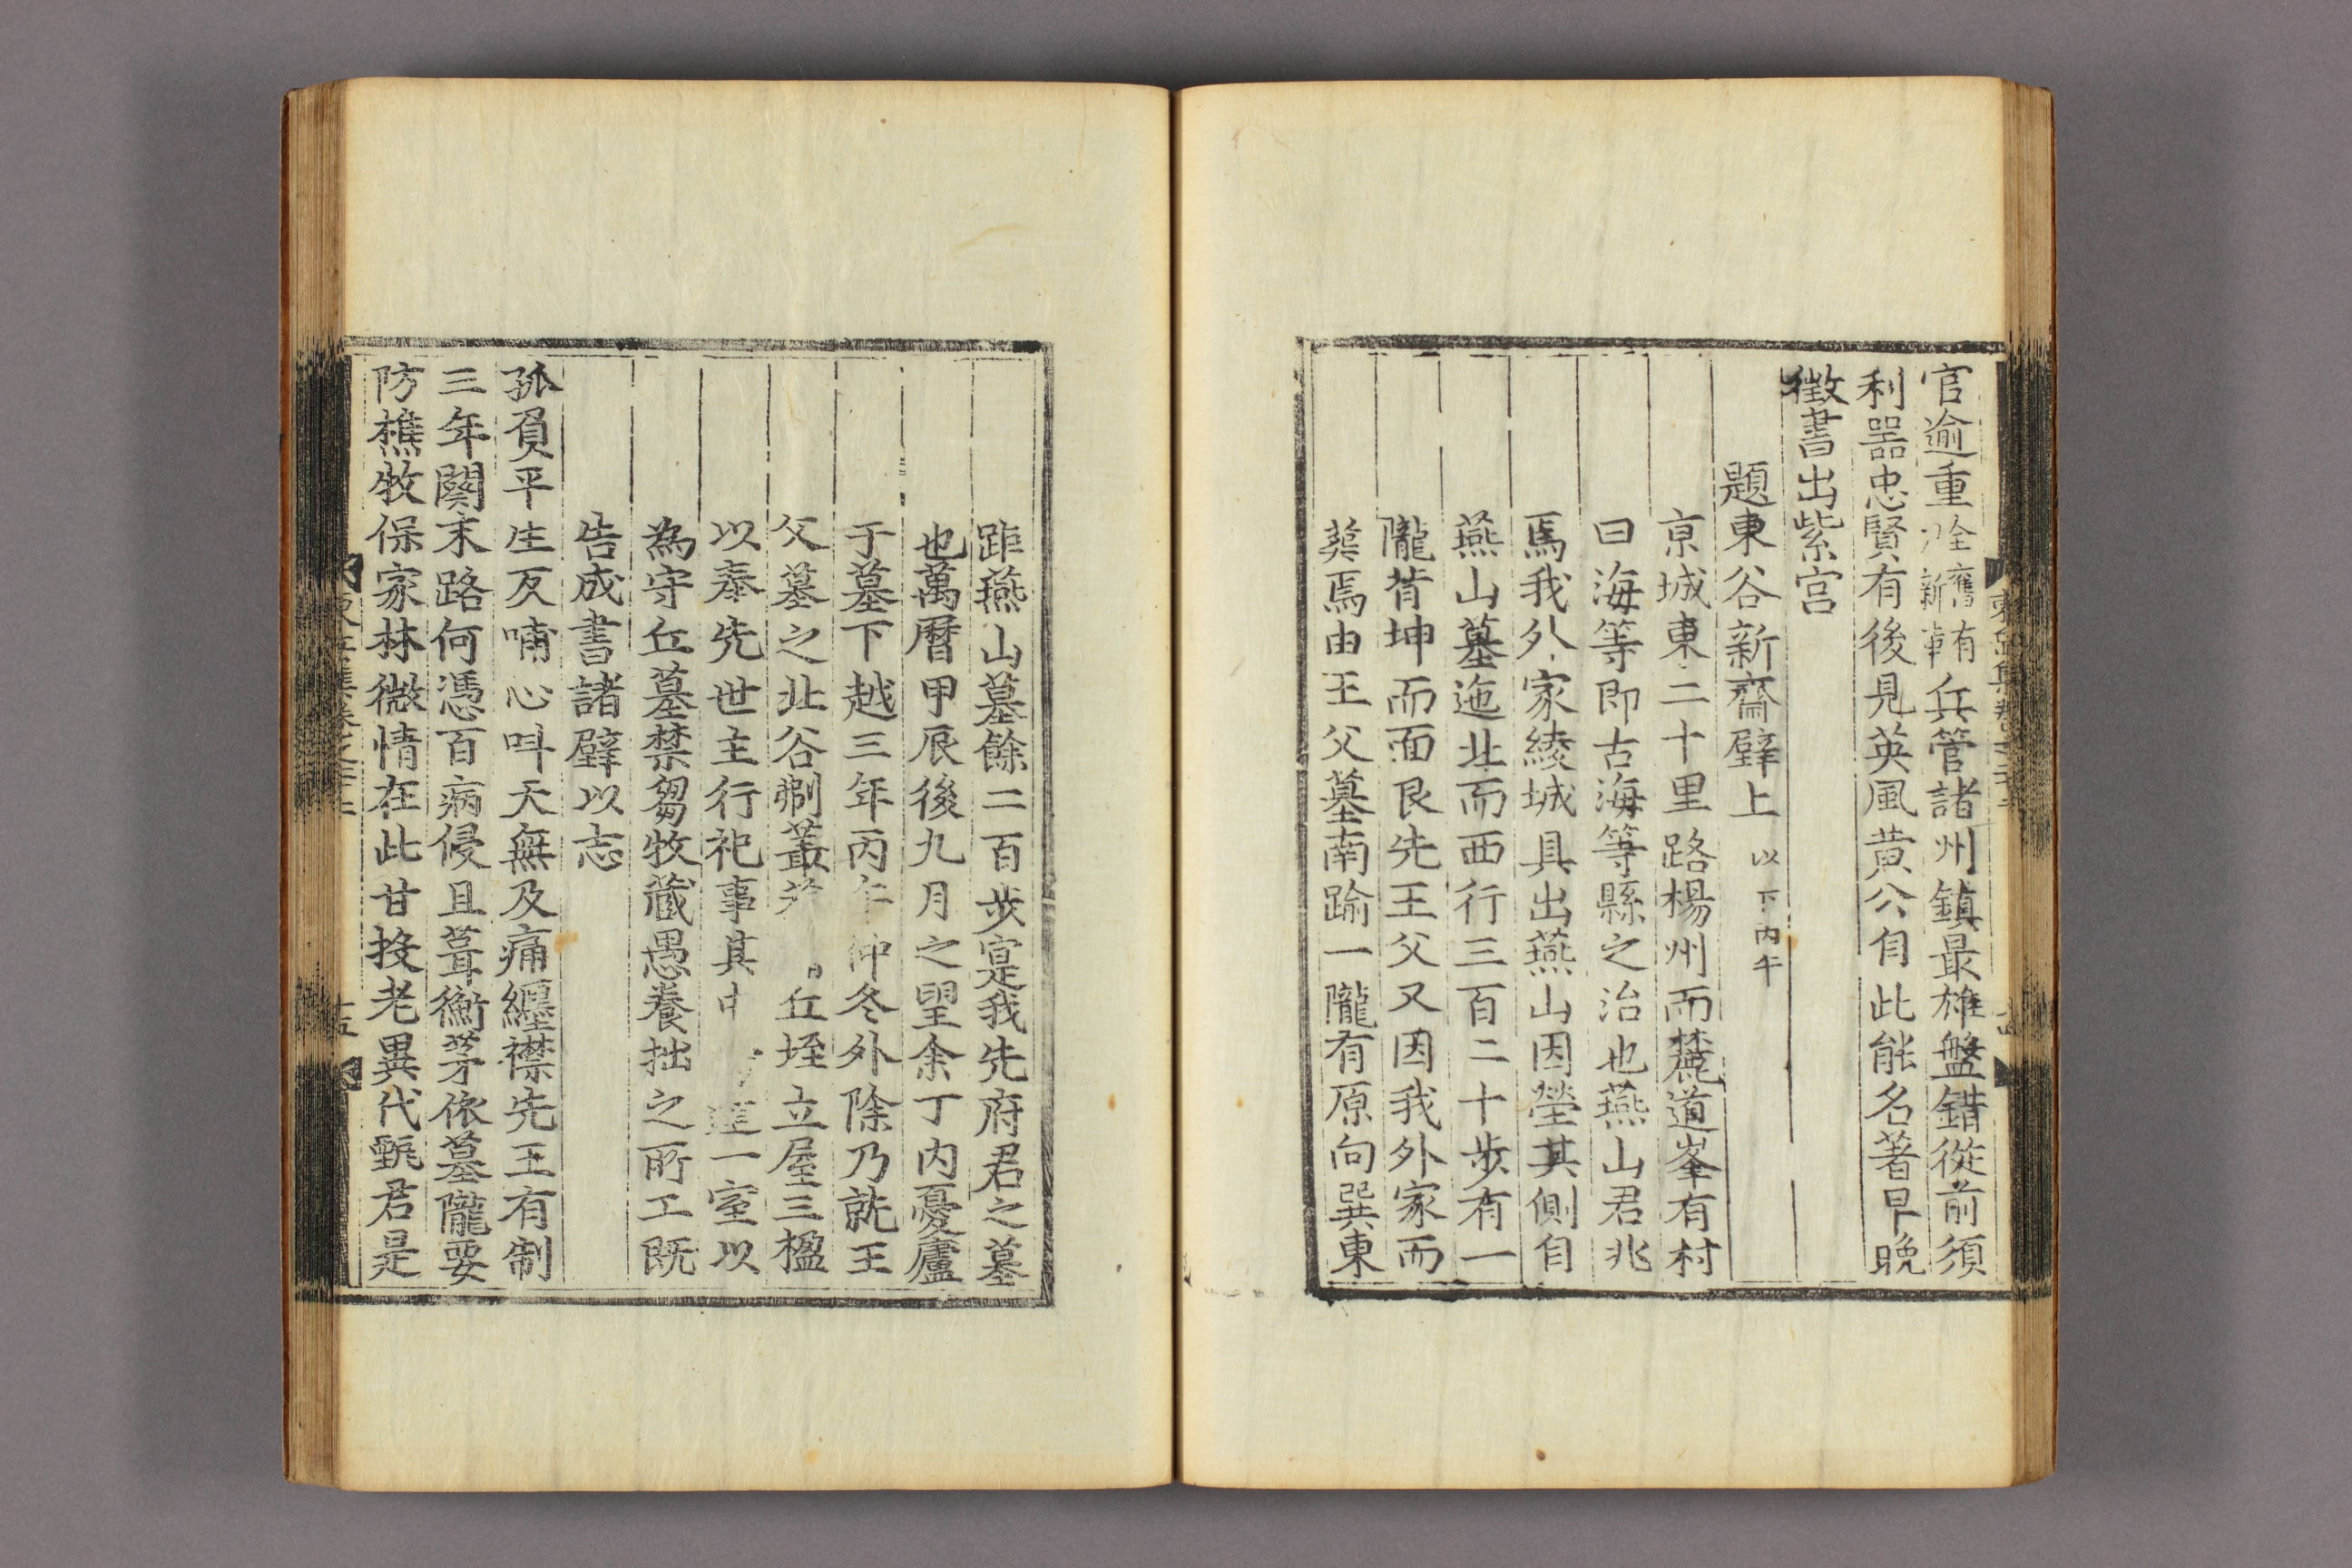 官逾重洤舊新有車兵管諸州鎮最雄盤錯從前須
利器忠賢有後見英風黄公自此能名著早晚
徵書出紫宮
題東谷新齋壁上以下丙午
京城東二十里路楊州而麓道峯有村
曰海等即古海等縣之治也燕山君兆
焉我外家綾城具出燕山因塋其側自
燕山墓迤北而西行三百二十步有一
隴背坤而面艮先王父又因我外家而
葬焉由王父墓南踰一隴有原向巽東
距燕山墓餘二百步寔我先府君之墓
也萬曆甲辰後九月之望余丁内憂廬
于墓下越三年丙午仲冬外除乃就王
父墓之北谷剷叢丘垤立屋三楹
以奉先世主行祀事其中一室以
為守丘墓禁芻牧藏愚養拙之所工既
告成書諸壁以志
孤負平生反哺心呌天無及痛纒襟先王有制
三年闋末路何憑百病侵且葺衡茅依墓隴要
防樵牧保家林微情在此甘投老異代甄君是